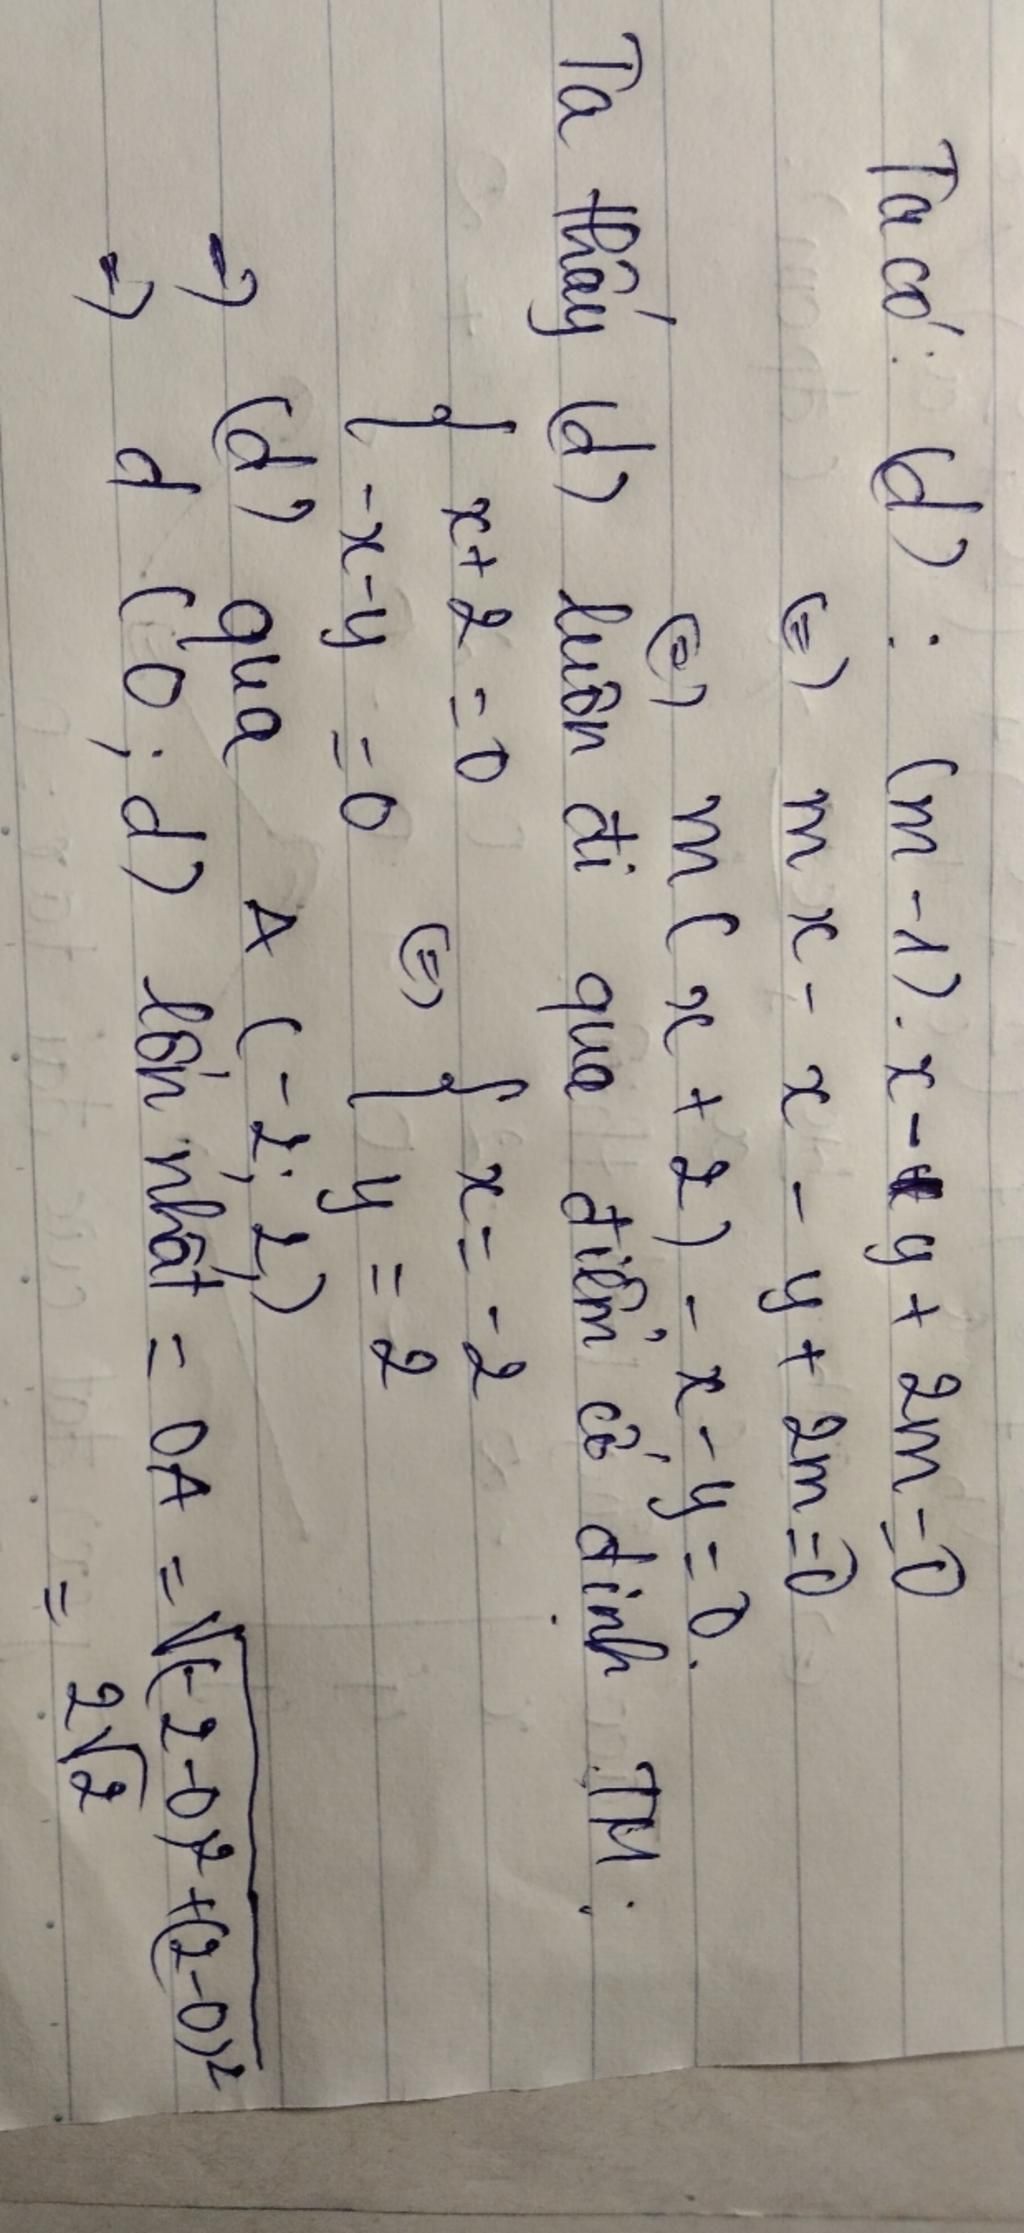 Ta có: (d) : (m-1).x-y+2m=0
(=) mx-x-y+2m=0
(=) m(x+2)-x-y=0.
Ta thấy (d) luôn đi qua điểm cố định TM:
{ x+2=0
{ -x-y=0
(=) { x=-2
{ y=2
=) (d) qua A (-2; 2)
=) d (O; d) lớn nhất = OA = √(-2-0)²+(2-0)²
= 2√2